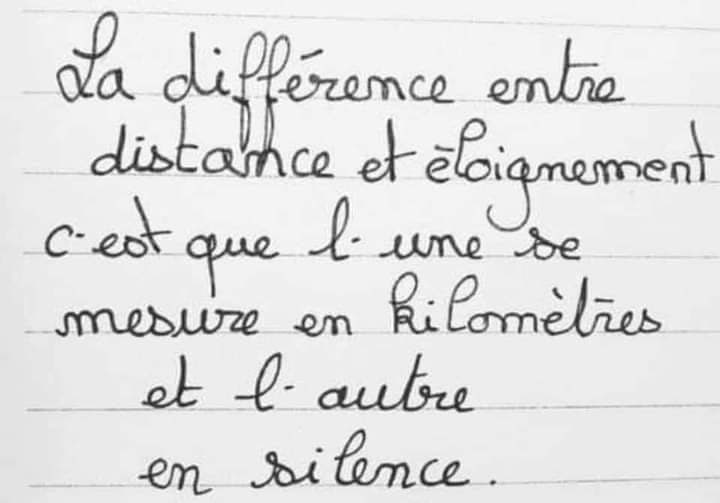 La différence entre
distance et éloignement
c'est que l'une se
mesure en kilomètres
et l'autre
en silence.